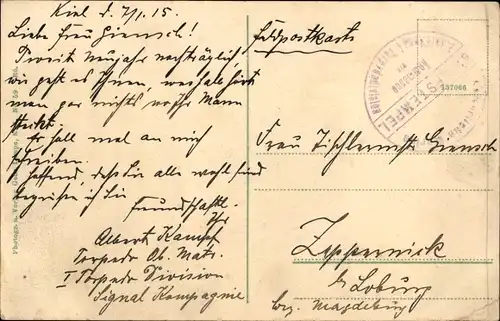 Kiel d. 7/1. 15.
Liebe Frau Giensch!
Prosit Neujahr nachträglich,
wie geht es Ihnen, weshalb hört
man gar nichts! Mann
steckt. Er soll mal an mich
schreiben.
Hoffend, daß Sie alle wohl sind
begrüße ich Sie
Freundschaftl.
Ihr
Albert Kampf
Torpedo Ob. Matr.
I Torpedo Division
Signal Kompagnie
Feldpostkarte
STEMPEL
137066
Frau Tischlermstr. Giensch
Zeppernick
b/ Loburg
Bez. Magdeburg